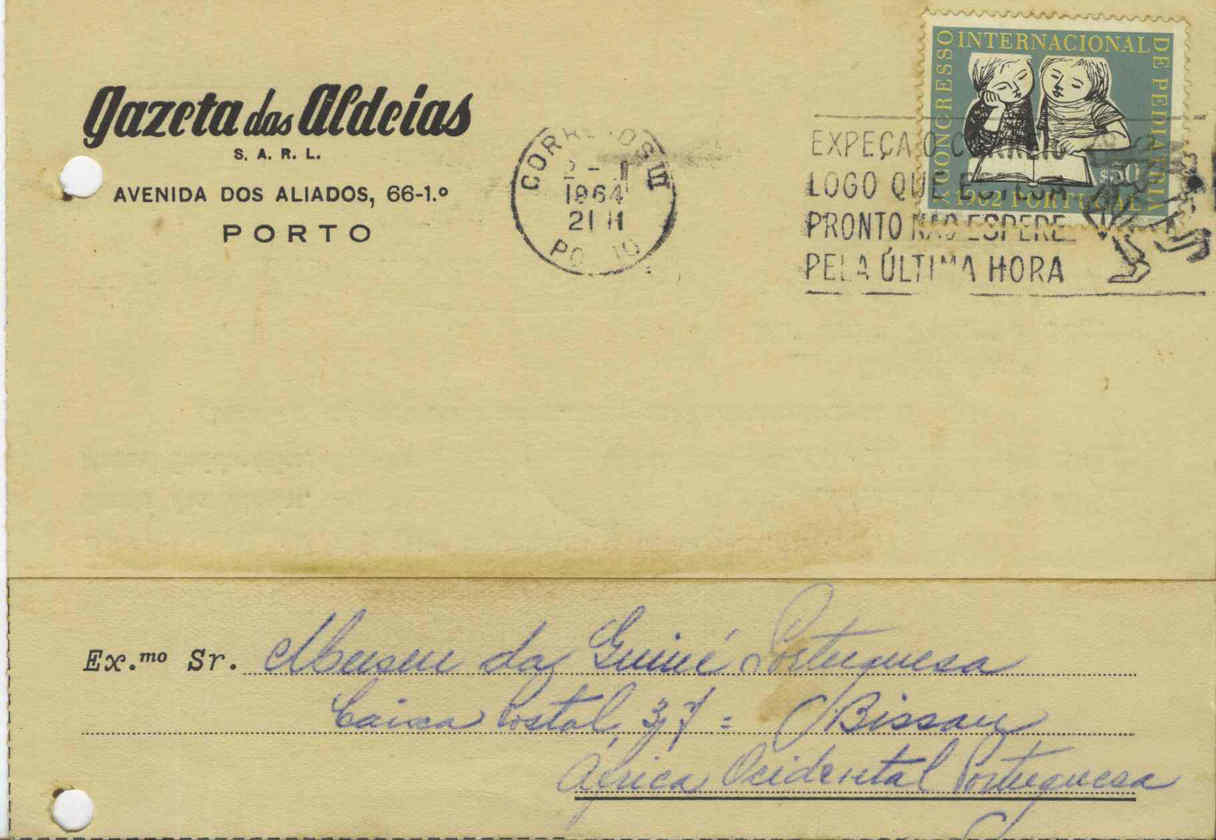 Gazeta das Aldeias
S. A. R. L.
AVENIDA DOS ALIADOS, 66-1.º
PORTO
CORREIOS
1964
21 H
PORTO
EXPEÇA O CORREIO
LOGO QUE ESTEJA
PRONTO NÃO ESPERE
PELA ÚLTIMA HORA
X CONGRESSO INTERNACIONAL DE PEDIATRIA
$50
1962 PORTUGAL
Ex.mo Sr. Museu da Guiné Portuguesa
Caixa Postal, 37 = Bissau
África Ocidental Portuguesa